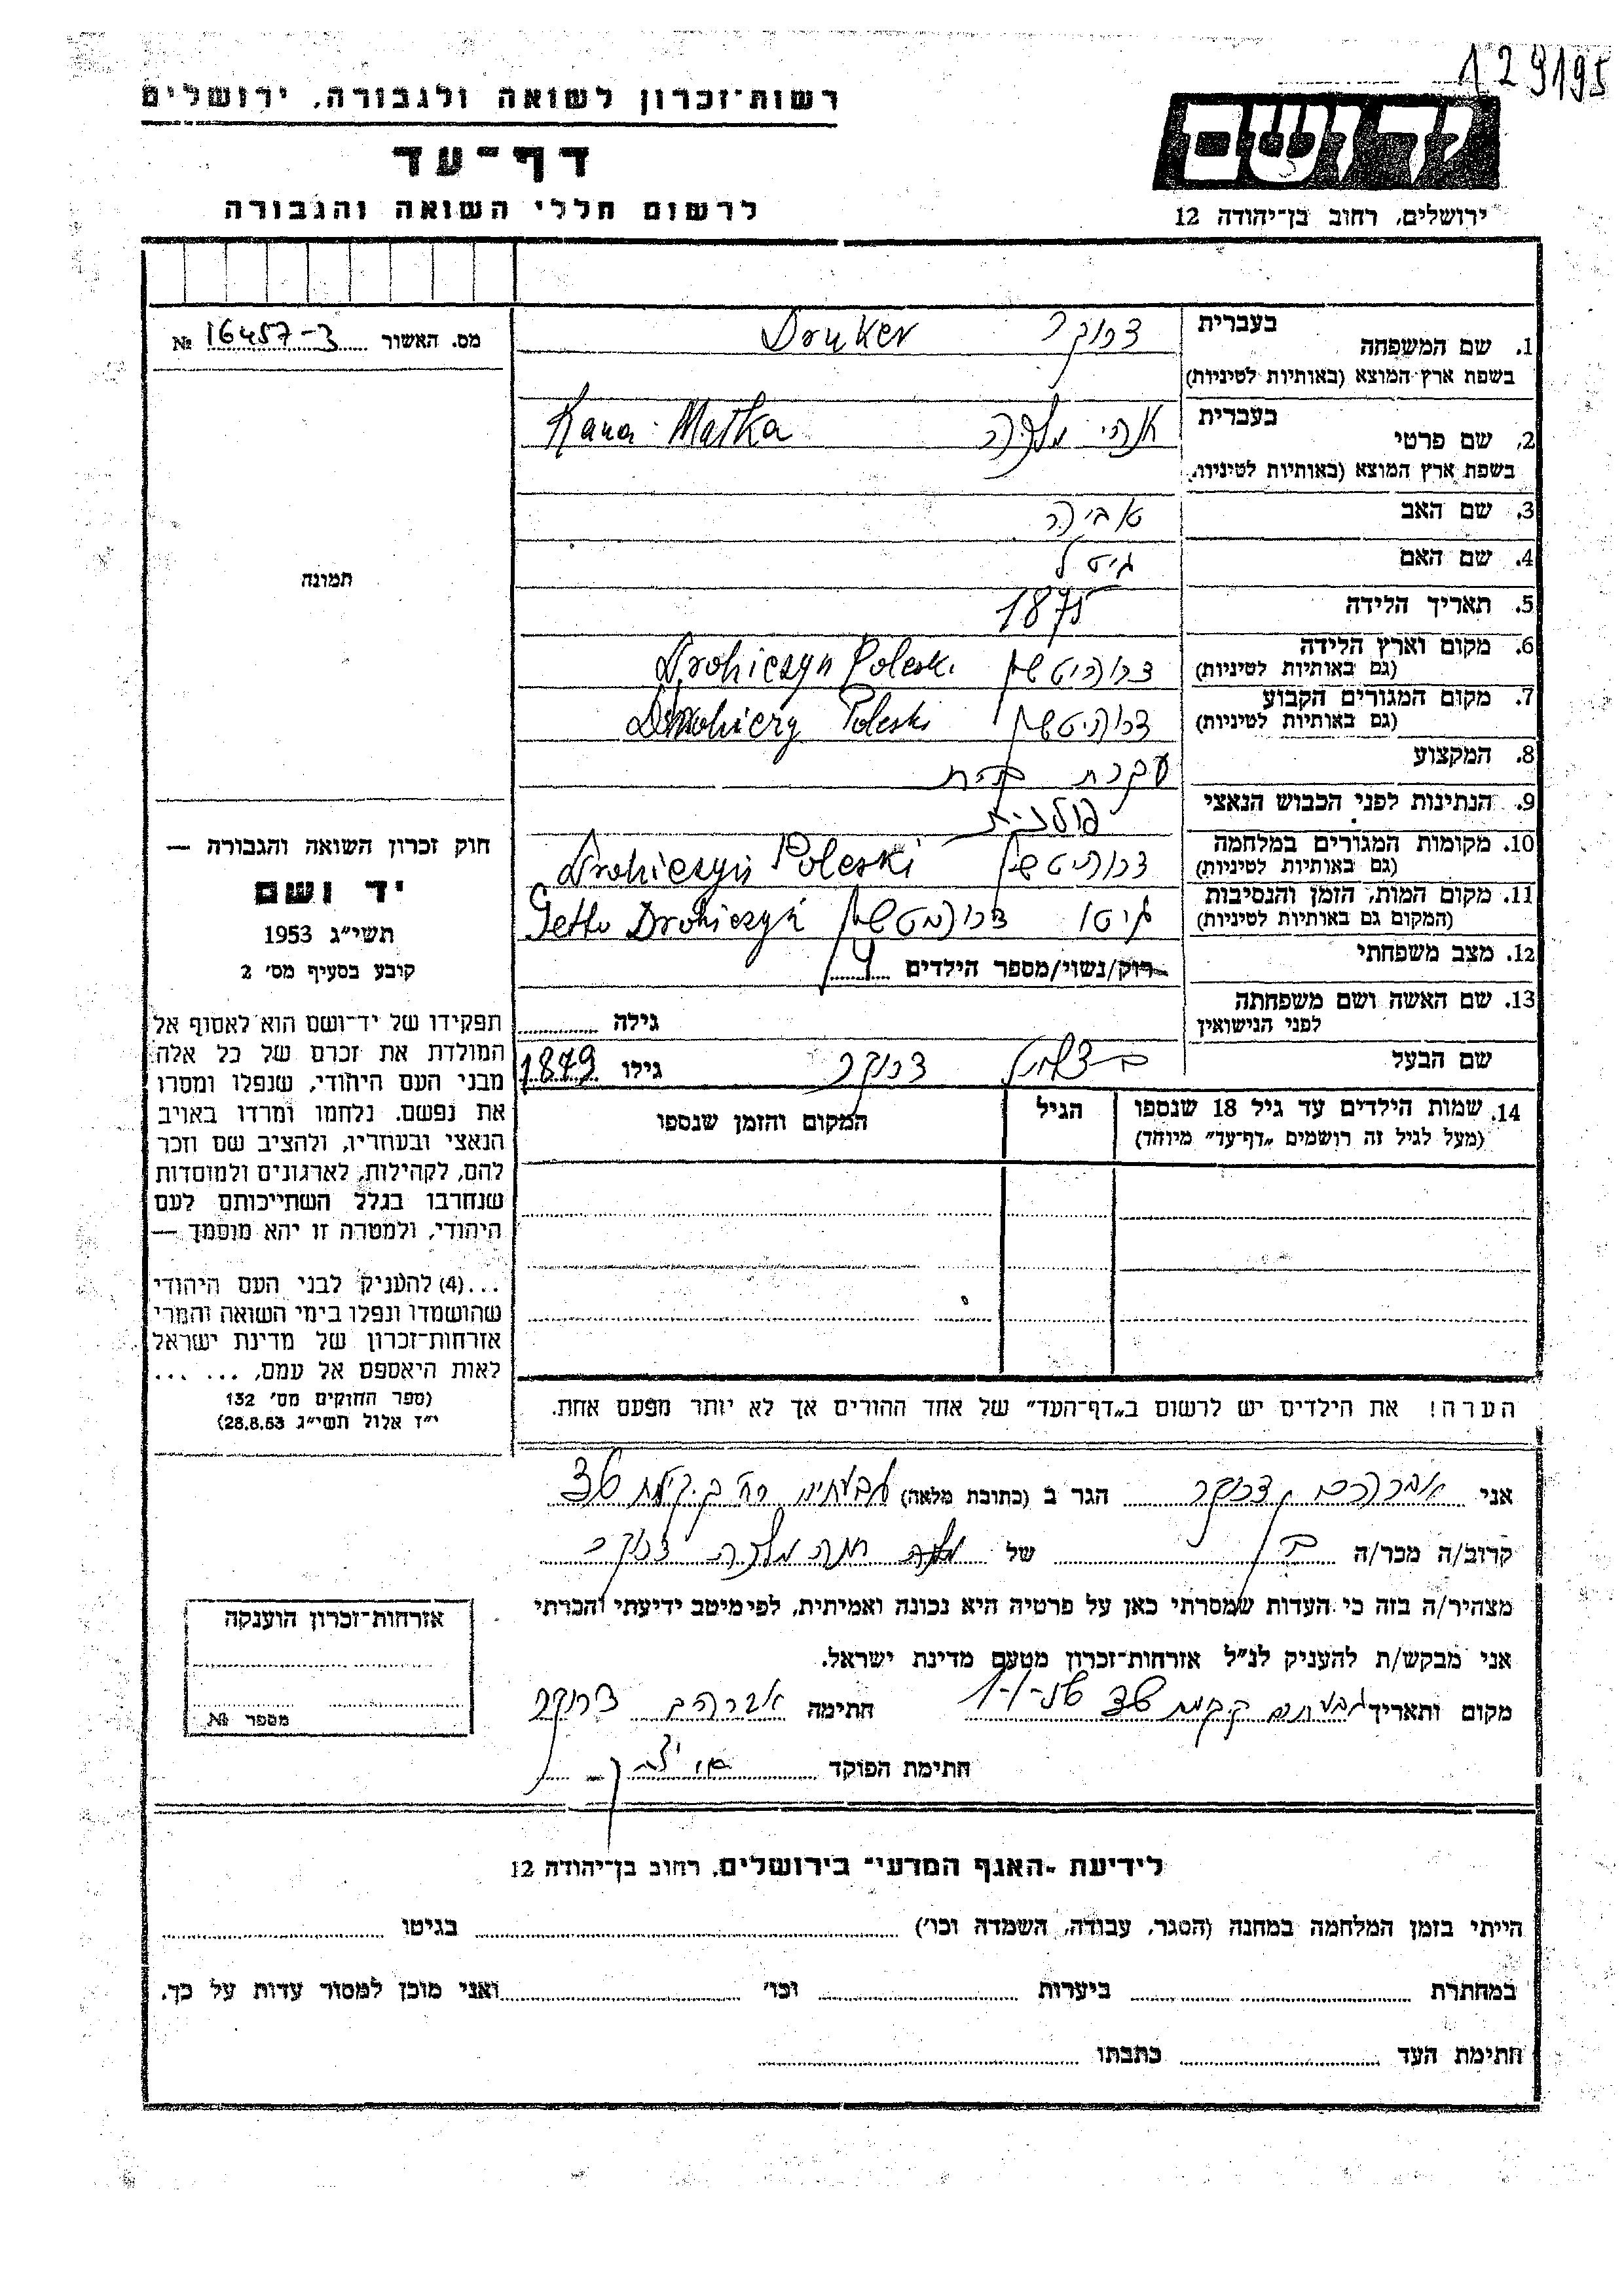 129195
רשות־זכרון לשואה ולגבורה, ירושלים
דף־עד
לרשום חללי השואה והגבורה
יד ושם
ירושלים, רחוב בן־יהודה 12
מס. האשור 16457-3 №
תמונה
חוק זכרון השואה והגבורה —
יד ושם
תשי״ג 1953
קובע בסעיף מס׳ 2
תפקידו של יד־ושם הוא לאסוף אל
המולדת את זכרם של כל אלה
מבני העם היהודי, שנפלו ומסרו
את נפשם, נלחמו ומרדו באויב
הנאצי ובעוזריו, ולהציב שם וזכר
להם, לקהילות, לארגונים ולמוסדות
שנחרבו בגלל השתייכותם לעם
היהודי, ולמטרה זו יהא מוסמך —
...(4) להעניק לבני העם היהודי
שהושמדו ונפלו בימי השואה והמרי
אזרחות־זכרון של מדינת ישראל
לאות היאספם אל עמם. ... ...
(ספר החוקים מס׳ 132
י״ז אלול תשי״ג 28.8.53)
1. שם המשפחה בעברית דרוקר Druker
בשפת ארץ המוצא (באותיות לטיניות)
2. שם פרטי בעברית מלכה Malka
בשפת ארץ המוצא (באותיות לטיניות)
3. שם האב
4. שם האם גיטל
5. תאריך הלידה 1875
6. מקום וארץ הלידה דרוהיטשין Drohiczyn Poleski
(גם באותיות לטיניות)
7. מקום המגורים הקבוע דרוהיטשין Poleski
(גם באותיות לטיניות)
8. המקצוע עקרת בית
9. הנתינות לפני הכבוש הנאצי פולנית
10. מקומות המגורים במלחמה דרוהיטשין Drohiczyn Poleski
(גם באותיות לטיניות)
11. מקום המות, הזמן והנסיבות גיטו דרוהיטשין Getto Drohiczyń
(המקום גם באותיות לטיניות)
12. מצב משפחתי רוק/נשוי/מספר הילדים 4
13. שם האשה ושם משפחתה גילה
לפני הנישואין
שם הבעל דרוקר גילו 1879
14. שמות הילדים עד גיל 18 שנספו הגיל המקום והזמן שנספו
(מעל לגיל זה רושמים „דף־עד״ מיוחד)
הערה! את הילדים יש לרשום ב„דף־העד״ של אחד ההורים אך לא יותר מפעם אחת.
אני אברהם דרוקר הגר ב (כתובת מלאה) גבעתיים רח׳
קרוב/ה מכר/ה בן של חנה מלכה דרוקר
מצהיר/ה בזה כי העדות שמסרתי כאן על פרטיה היא נכונה ואמיתית, לפי מיטב ידיעתי והכרתי
אני מבקש/ת להעניק לנ״ל אזרחות־זכרון מטעם מדינת ישראל.
מקום ותאריך חתימה אברהם דרוקר
חתימת הפוקד
אזרחות־זכרון הוענקה
מספר №
לידיעת „האגף המדעי״ בירושלים, רחוב בן־יהודה 12
הייתי בזמן המלחמה במחנה (הסגר, עבודה, השמדה וכו׳) בגיטו
במחתרת ביערות וכו׳ ואני מוכן למסור עדות על כך.
חתימת העד כתבתו